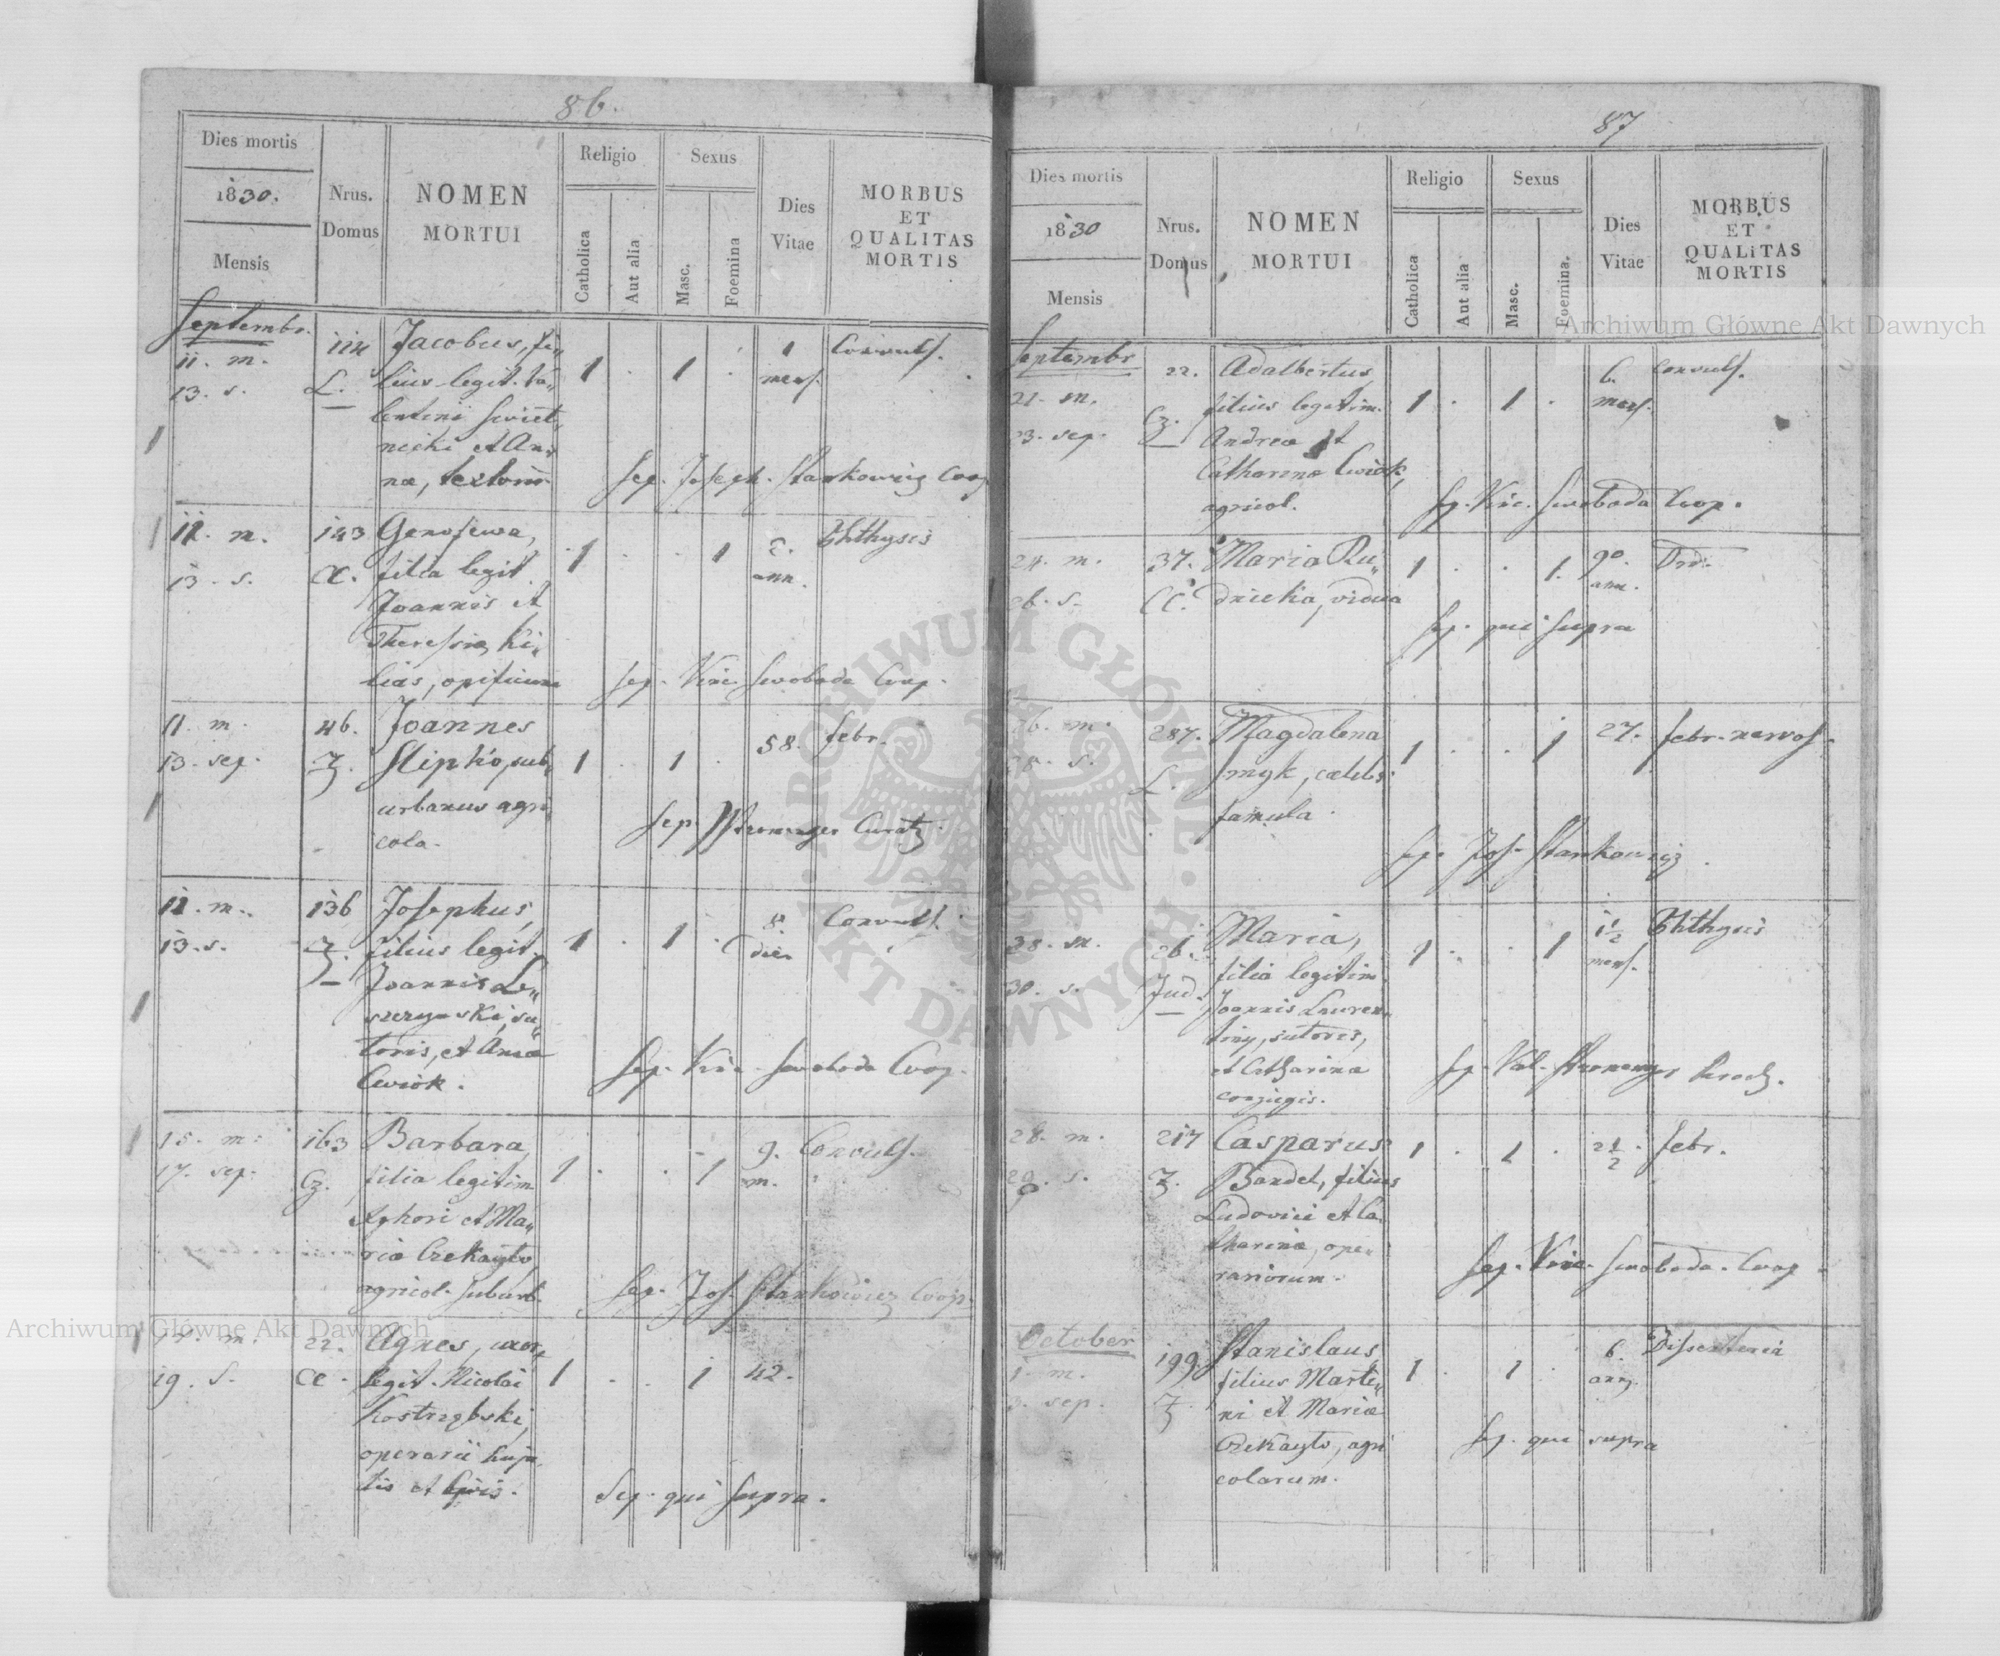 86.
Dies mortis
1830.
Mensis
Nrus.
Domus
NOMEN
MORTUI
Religio
Catholica
Aut alia
Sexus
Masc.
Foemina
Dies
Vitae
MORBUS
ET
QUALITAS
MORTIS
Septembr.
11. m.
13. s.
114
L.
Jacobus, fi„
lius legit. Va„
lentini Swiet„
nicki et An„
næ, textorum
1 . 1 .
1
mens.
Convuls.
Sep. Joseph. Stankowicz Coop
11. m.
13. s.
143
Genofewa,
filia legit.
Joannis et
Theresiæ Ki„
lias, opificum
1 . . 1
2.
ann.
Phthysis
Sep. Vinc. Swoboda Coop.
11. m.
13. sep.
46.
Z.
Joannes
Slipko, sub„
urbanus agri
cola.
1 . 1 .
58.
febr.
Sep. Curatg.
12. m.
13. s.
136
Z.
Josephus,
filius legit.
Joannis Le„
szczynski, su„
toris, et Annæ
Cwiok.
1 . 1 .
8.
dies
Convuls.
Sep. Vinc. Swoboda Coop.
15. m.
17. sep.
163
Cz.
Barbara,
filia legitim.
et Ma„
riæ Czekayło
agricol. suburb.
1 . . 1
9.
m.
Convuls.
Sep. Jos. Stankowicz Coop.
17. m.
19. s.
22.
Agnes, uxor
legit. Nicolai
Kostrzębski,
operarii huja
tis et Civis.
1 . . 1
42.
Sep. qui supra.
87
Dies mortis
1830
Mensis
Nrus.
Domus
NOMEN
MORTUI
Religio
Catholica
Aut alia
Sexus
Masc.
Foemina.
Dies
Vitae
MORBUS
ET
QUALITAS
MORTIS
Septembr
21. m.
23. sep.
22.
Cz.
Adalbertus
filius legitim.
Andreæ et
Catharinæ Cwiok,
agricol.
1 . 1 .
6.
mens.
convuls.
Sep. Vinc. Swoboda Coop.
24. m.
26. s.
37.
Maria Ru„
dnicka, vidua
1 . . 1.
90.
ann.
Ord.
Sep. qui supra
26. m.
28. s.
287.
L.
Magdalena
Smyk, cælebs
famula.
1 . . 1
27.
febr. nervos.
Sep. Jos. Stankowicz.
28. m.
30. s.
26.
Jud.
Maria,
filia legitim
Joannis Lauren„
tiny, sutoris,
et Catharinæ
conjugis.
1 . . 1
1½
mens.
Phthysis
Sep. Val. Paroch.
28. m.
29. s.
217
Z.
Casparus
Bandel, filius
Ludovici et Ca„
tharinæ, ope„
rariorum.
1 . 1 .
2½.
febr.
Sep. Vinc. Swoboda. Coop.
October
1. m.
3. sep.
199.
Z.
Stanislaus,
filius Marti„
ni et Mariæ
Czekayło, agri
colarum.
1 . 1 .
6.
ann.
Dissenteria
Sep. qui supra
Archiwum Główne Akt Dawnych
Archiwum Główne Akt Dawnych
ARCHIWUM GŁÓWNE
AKT DAWNYCH